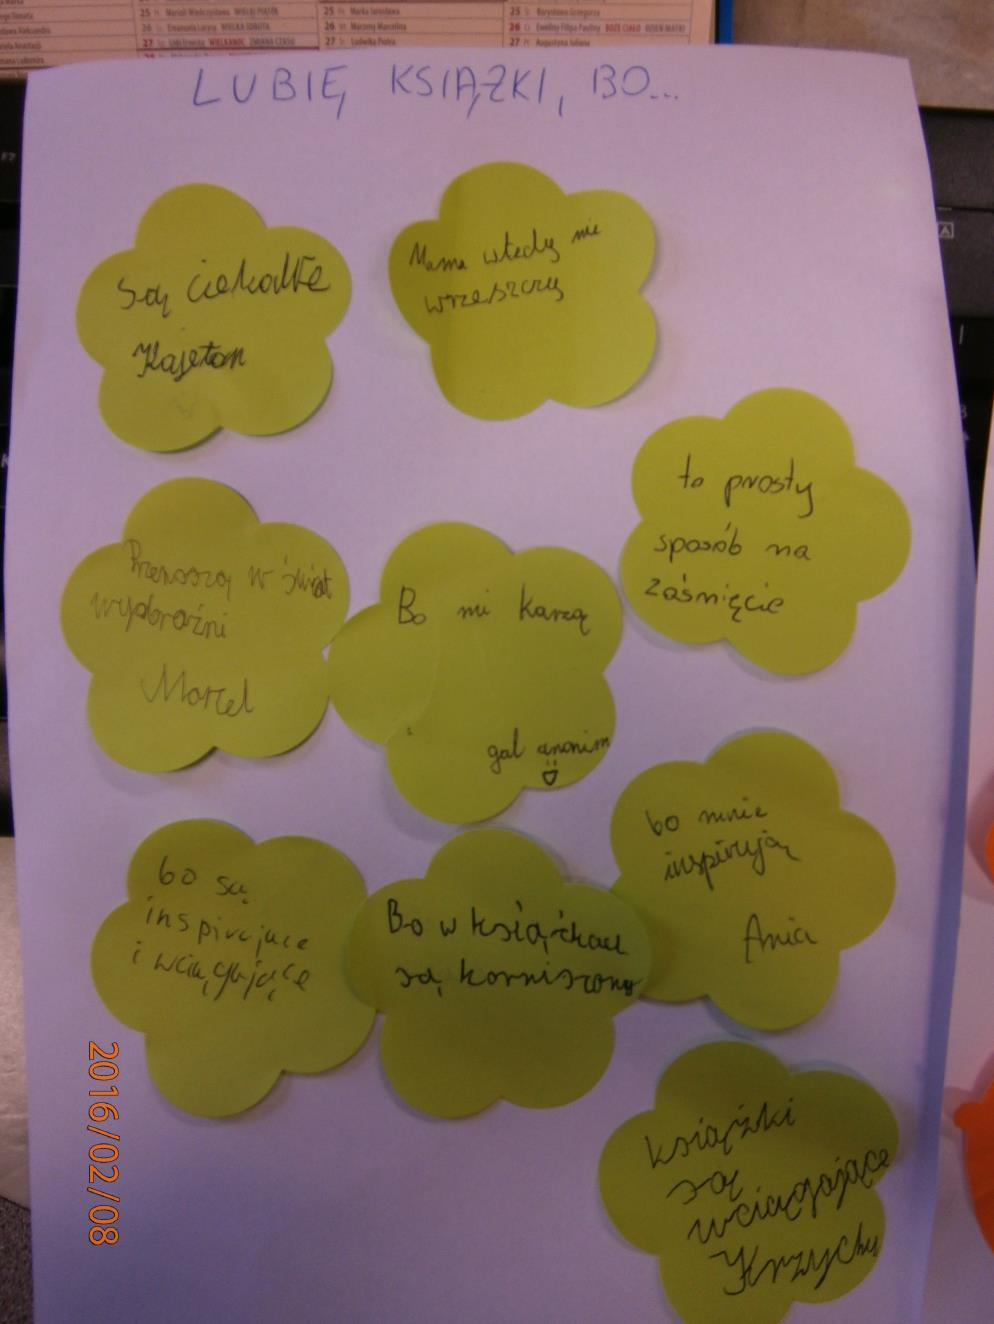 25 Marioli Wieńczysława WIELKI PIĄTEK
26 Emanuela Larysy WIELKA SOBOTA
27 WIELKANOC ZMIANA CZASU
25 Marka Jarosława
26 Marzeny Marcelina
27 Ludwika Piotra
25 Borysława Grzegorza
26 Eweliny Filipa Pauliny BOŻE CIAŁO DZIEŃ MATKI
27 Augustyna Juliana
LUBIĘ KSIĄŻKI, BO...
Są ciekawe
Kajetan
Mama wtedy nie
wrzeszczy
to prosty
sposób na
zaśnięcie
Przenoszą w świat
wyobraźni
Marcel
Bo mi karzą
gal anonim
bo mnie
inspirują
Ania
bo są
inspirujące
i wciągające
Bo w książkach
są korniszony
książki
są
wciągające
Krzychu
2016/02/08